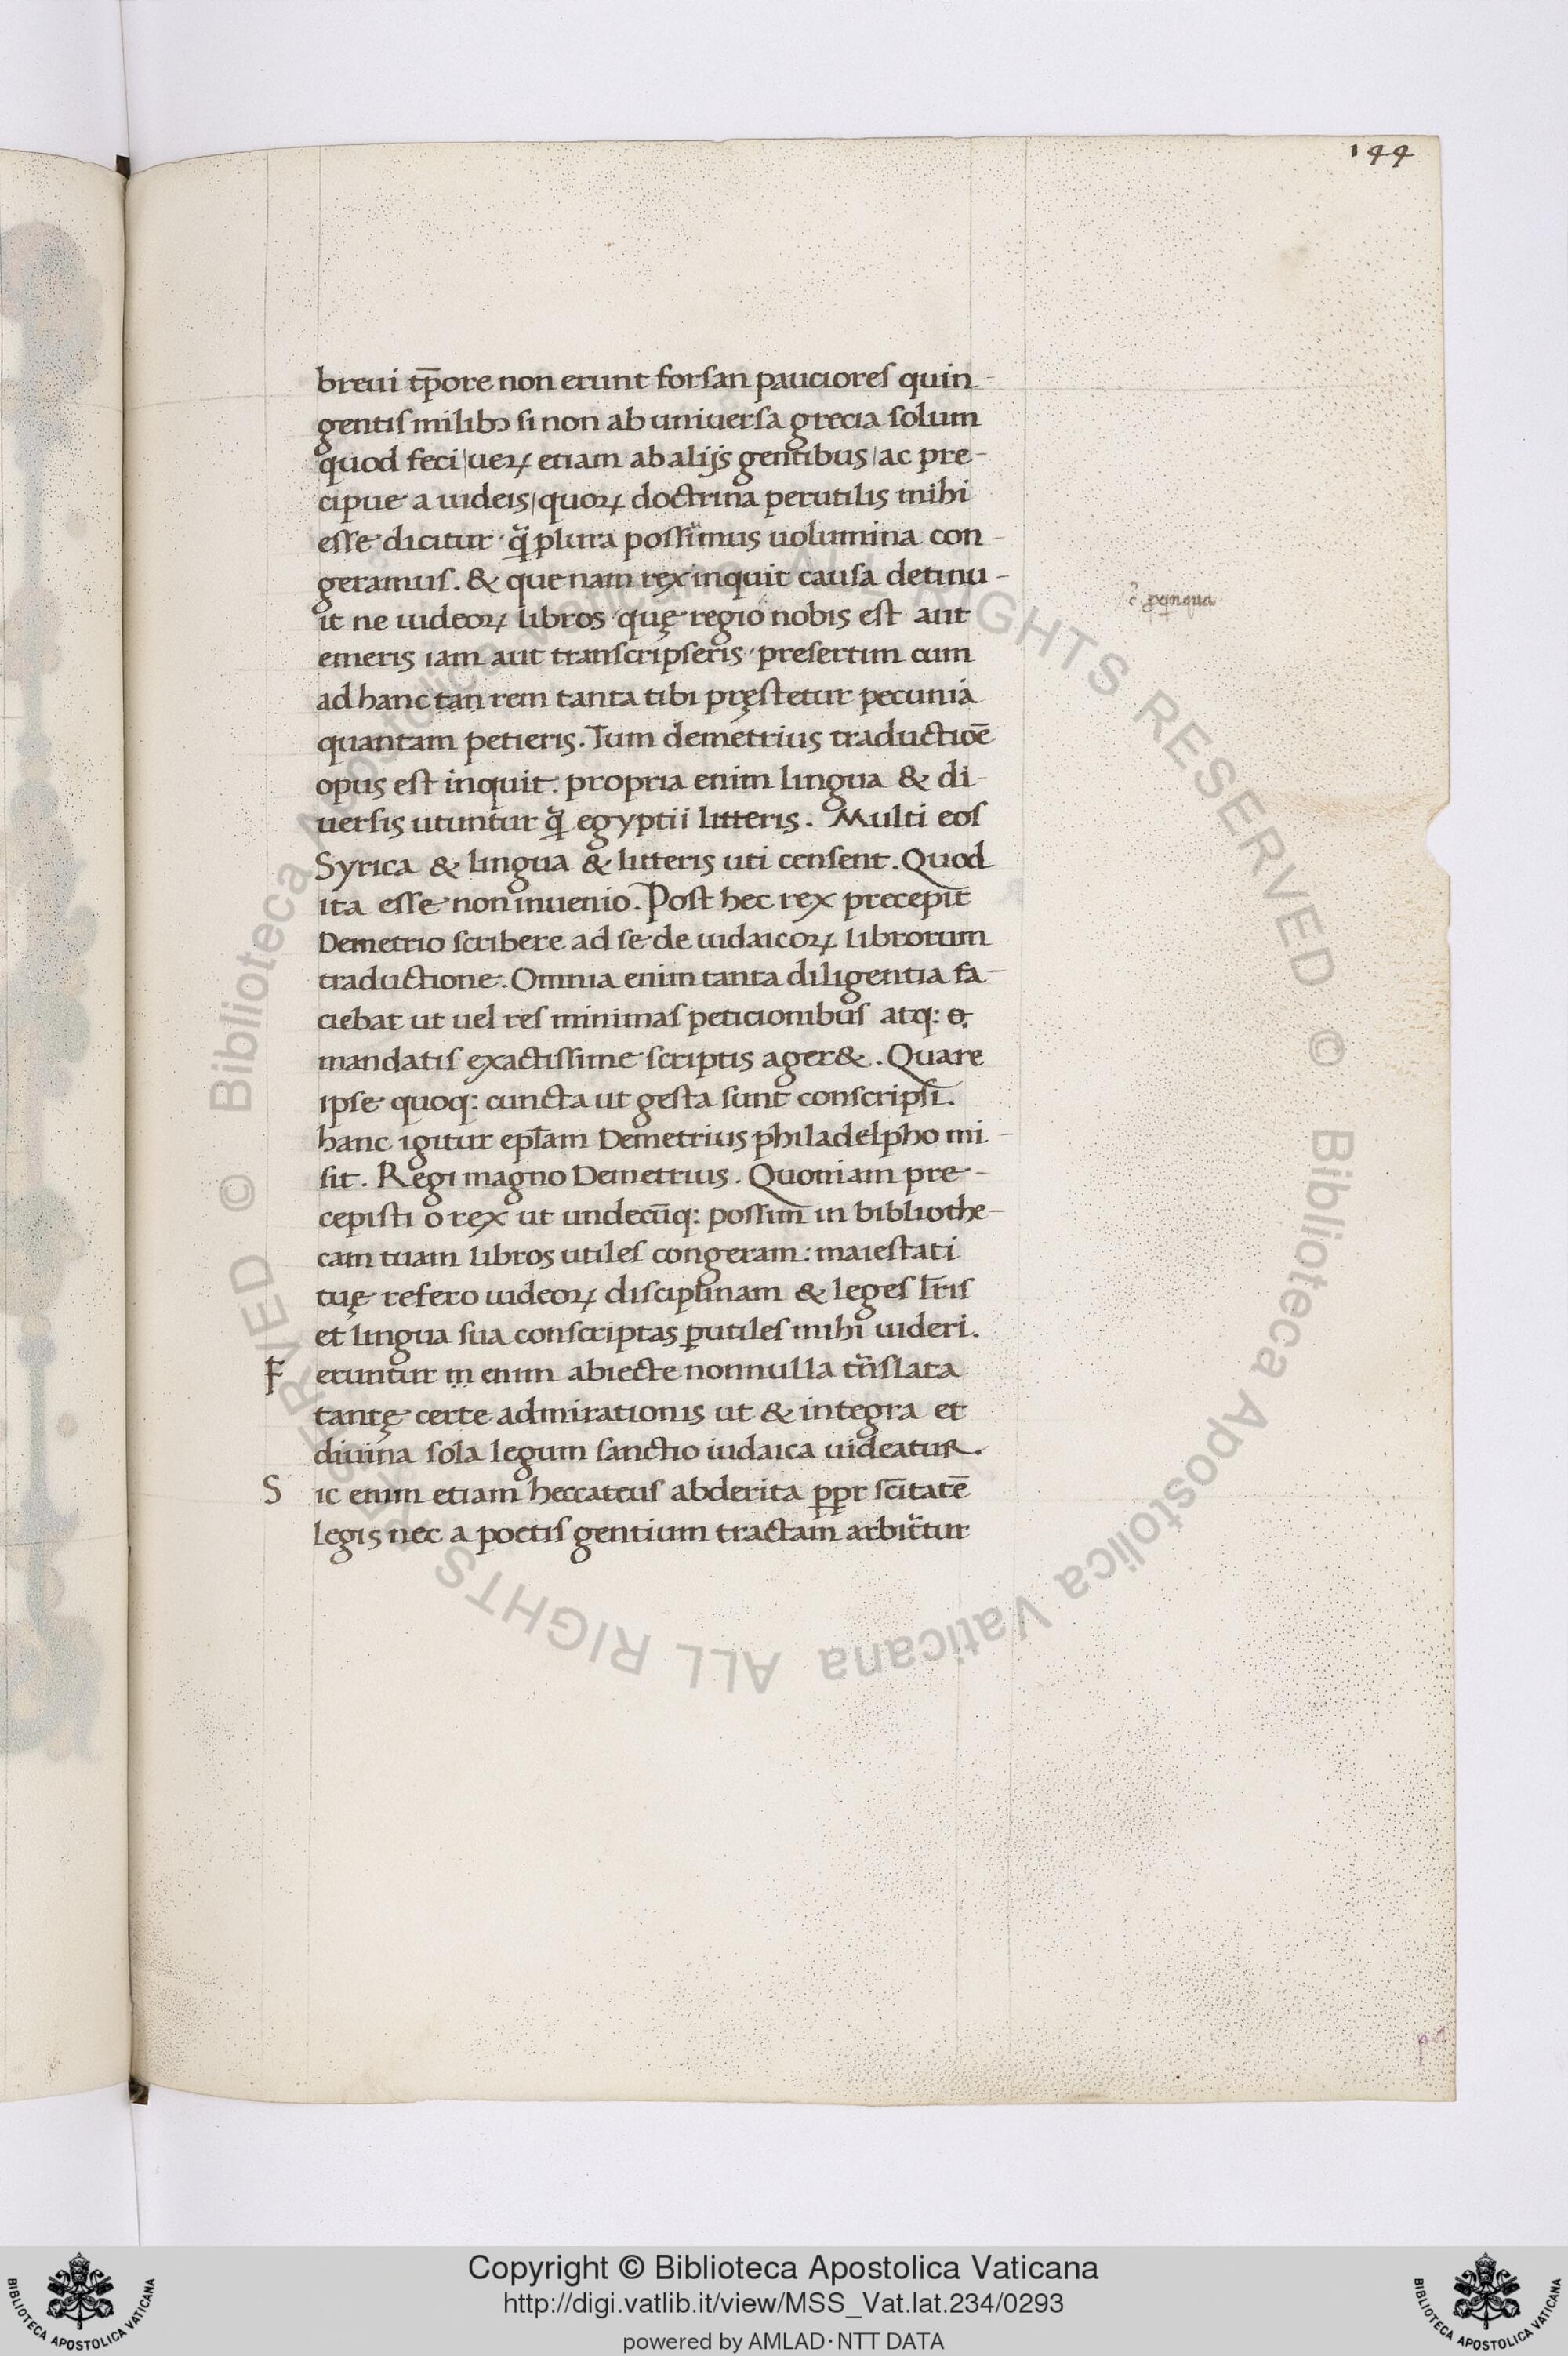 144
breui tp̄ore non erunt forsan pauciores quin-
gentis milibꝫ si non ab uniuersa grecia solum
quod feci|ueꝝ etiam ab alijs gentibus|ac pre-
cipue a iudeis|quoꝝ doctrina perutilis mihi
esse dicitur q̃ plura possimus uolumina con-
geramus. & que nam rex inquit causa detinu-
it ne iudeoꝝ libros quę regio nobis est aut
emeris iam aut transcripseris presertim cum
ad hanc tan rem tanta tibi pręstetur pecunia
quantam petieris. Tum demetrius traductioē
opus est inquit: propria enim lingua & di-
uersis utuntur q̃ egyptii litteris. Multi eos
Syrica & lingua & litteris uti censent. Quod
ita esse non inuenio. Post hec rex precepit
Demetrio scribere ad se de iudaicoꝝ librorum
traductione. Omnia enim tanta diligentia fa-
ciebat ut uel res minimas peticionibus atq:
mandatis exactissime scriptis ager&. Quare
ipse quoq: cuncta ut gesta sunt conscripsi.
hanc igitur epl̄am Demetrius philadelpho mi-
sit. Regi magno Demetrius. Quoniam pre-
cepisti o rex ut undecūq: possim in bibliothe-
cam tuam libros utiles congeram: maiestati
tuę refero iudeoꝝ disciplinam & leges l̄ris
et lingua sua conscriptas ꝑutiles mihi uideri.
Feruntur in enim abiecte nonnulla trñslata
tantę certe admirationis ut & integra et
diuina sola legum sanctio iudaica uideatur.
Sic enim etiam heccateus abderita ꝑꝑr sc̄itatē
legis nec a poetis gentium tractam arbitr̃tur
Copyright © Biblioteca Apostolica Vaticana
http://digi.vatlib.it/view/MSS_Vat.lat.234/0293
powered by AMLAD·NTT DATA
BIBLIOTECA APOSTOLICA VATICANA
BIBLIOTECA APOSTOLICA VATICANA
© Biblioteca Apostolica Vaticana ALL RIGHTS RESERVED
© Biblioteca Apostolica Vaticana ALL RIGHTS RESERVED